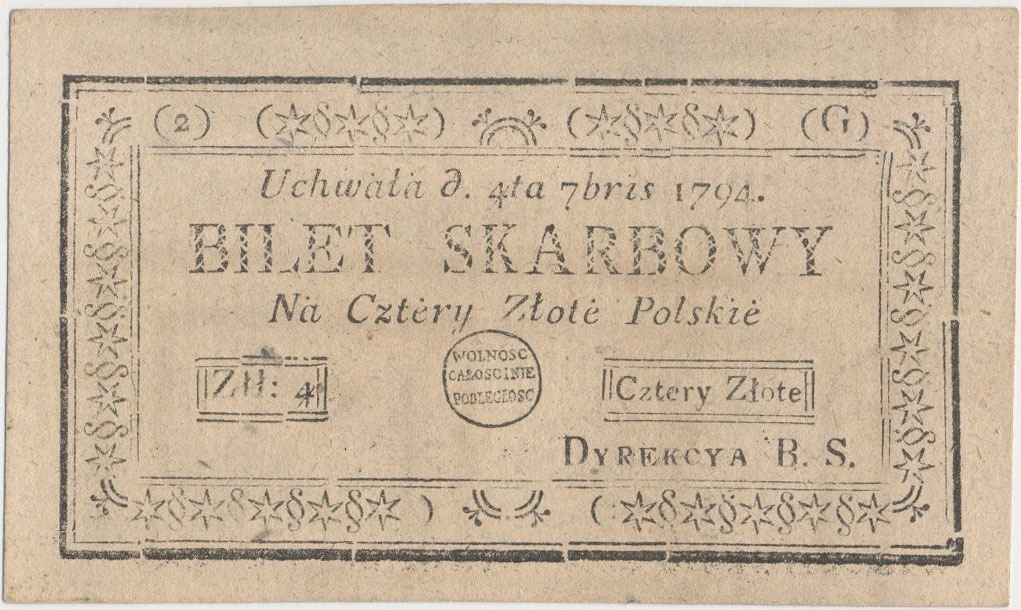 (2) (G)
Uchwała d. 4ta 7bris 1794.
BILET SKARBOWY
Na Cztéry Złoté Polskié
Zł: 4
WOLNOSC
CAŁOSCINIE
PODLEGŁOSC
Cztery Złote
DYREKCYA B. S.